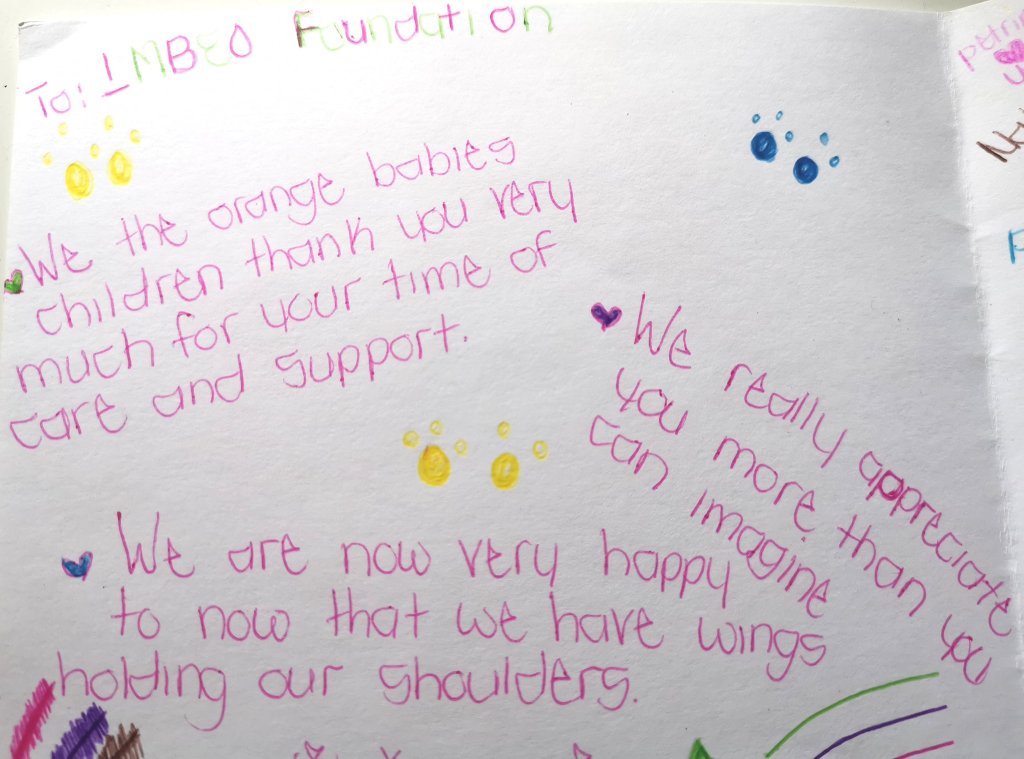 To: IMBEO Foundation
We the orange babies
children thank you very
much for your time of
care and support.
We really appreciate
you more than you
can imagine
We are now very happy
to now that we have wings
holding our shoulders.